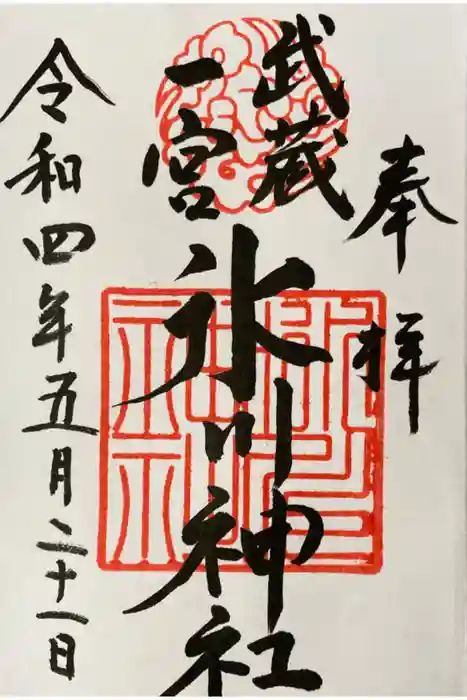 奉拝
武蔵
一宮
氷川神社
令和四年五月二十一日
氷川神社